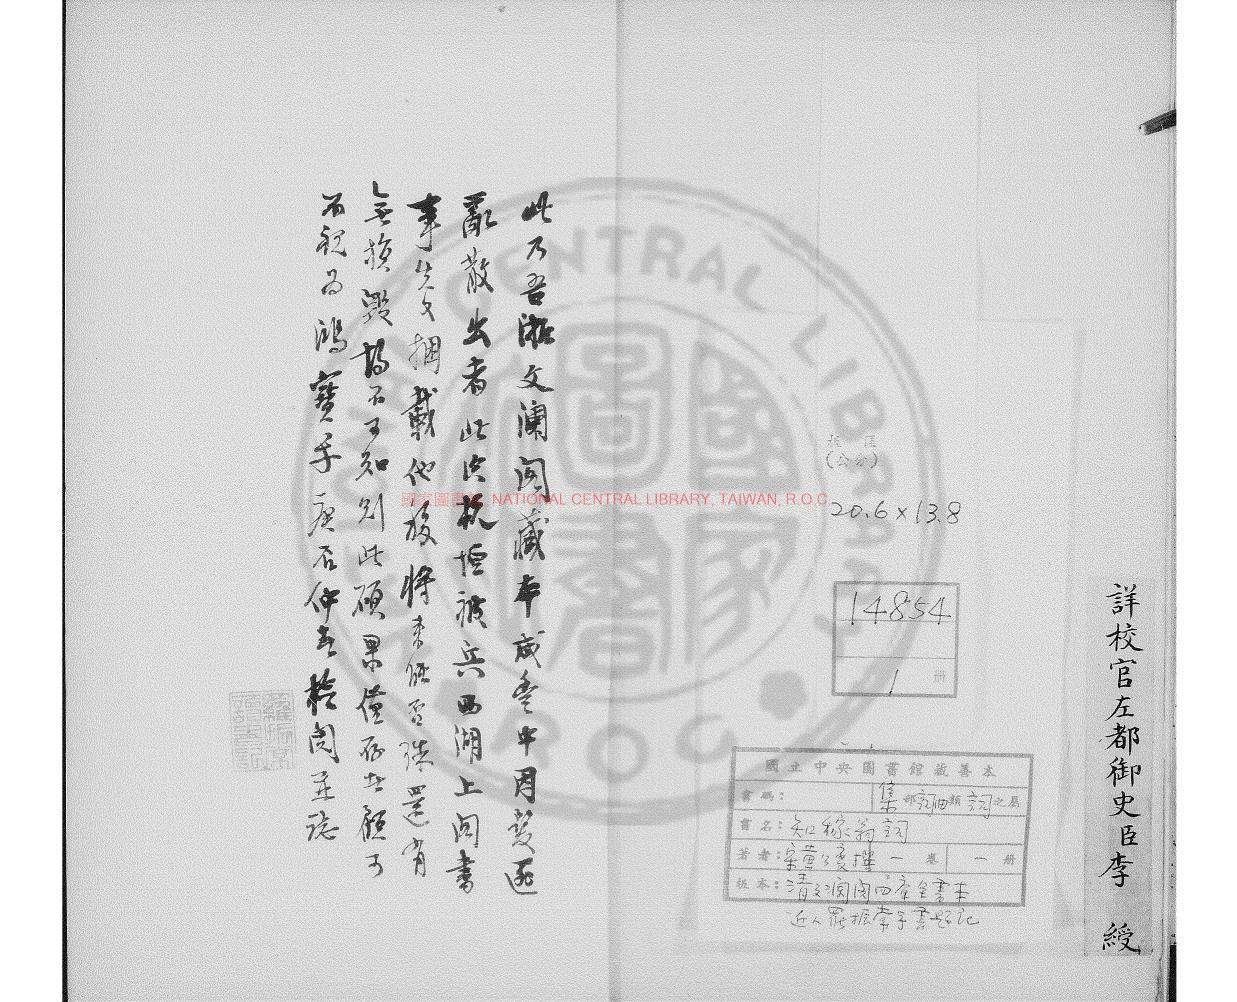 詳校官左都御史臣李 綬
(公分)
20.6×13.8
14854
1 册
國立中央圖書館藏善本
書碼： 集部詞曲類詞之屬
書名：知稼翁詞
著者：宋黃公度撰 一卷 一册
板本：清文瀾閣四庫全書本
近人羅振常手書題記
此乃吾浙文瀾閣藏本咸豐中因髮逆
亂散出者此次杭垣被兵西湖上閣書
事先又捆載他移將來能否珠還有
無損毀均不可知則此碩果僅存者顧可
不視為鴻寶乎庚辰仲春檢閱並誌
國家圖書館 NATIONAL CENTRAL LIBRARY, TAIWAN, R.O.C.
CENTRAL LIBRARY
R O C